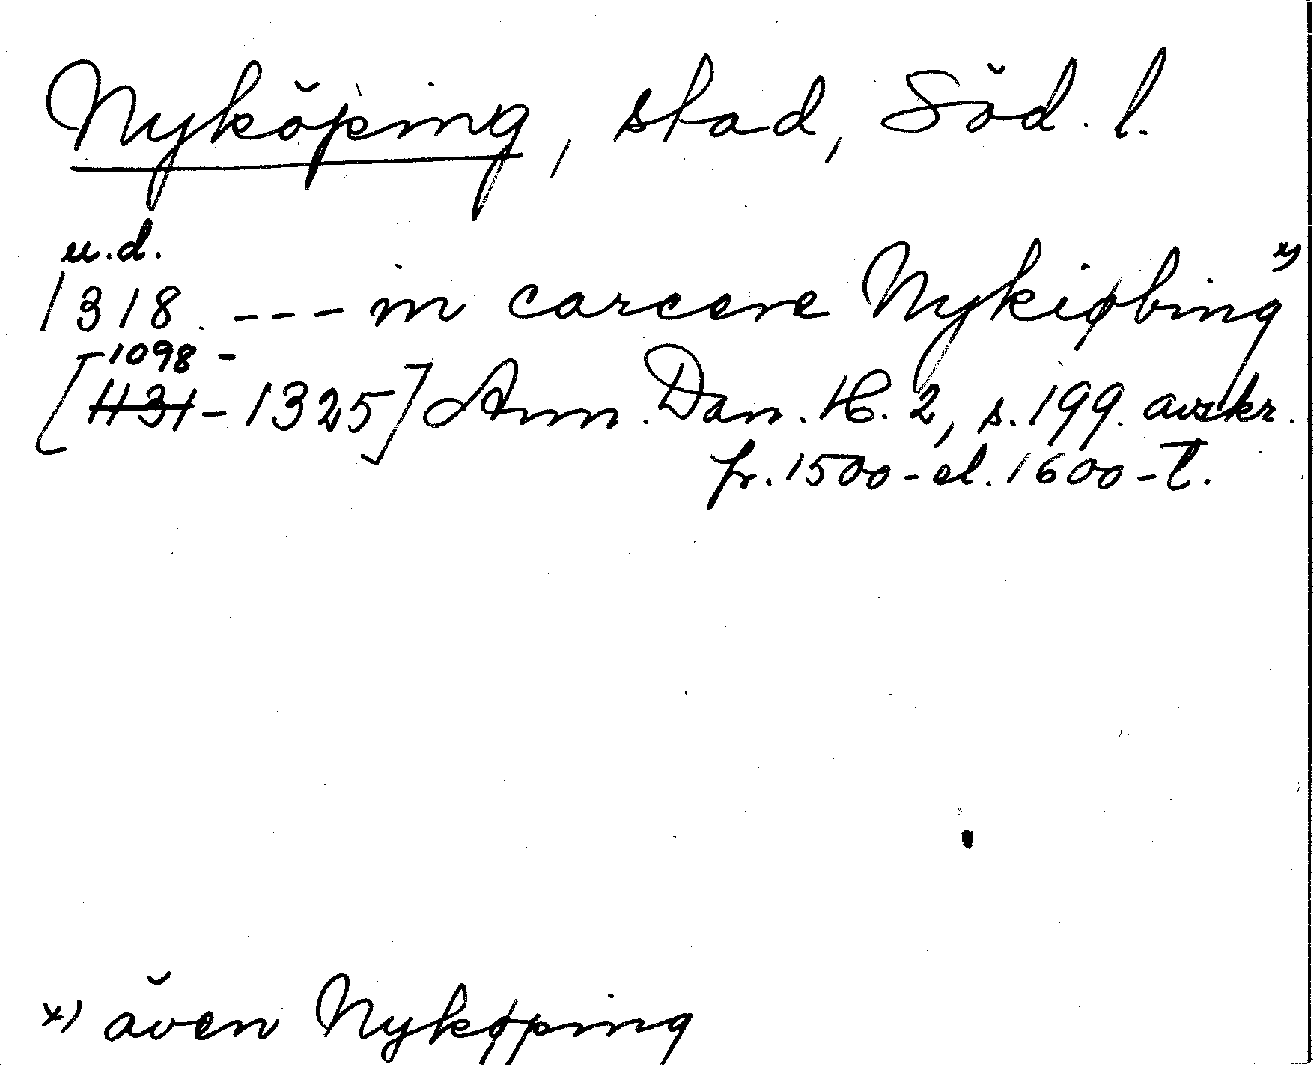 Nyköping, stad, Söd. l.
u.d.
1318 --- in carcere Nykiøbing x)
1098 -
[1131 - 1325] Ann. Dan. H. 2, s. 199. avskr.
fr. 1500- el. 1600-t.
x) även Nykøping